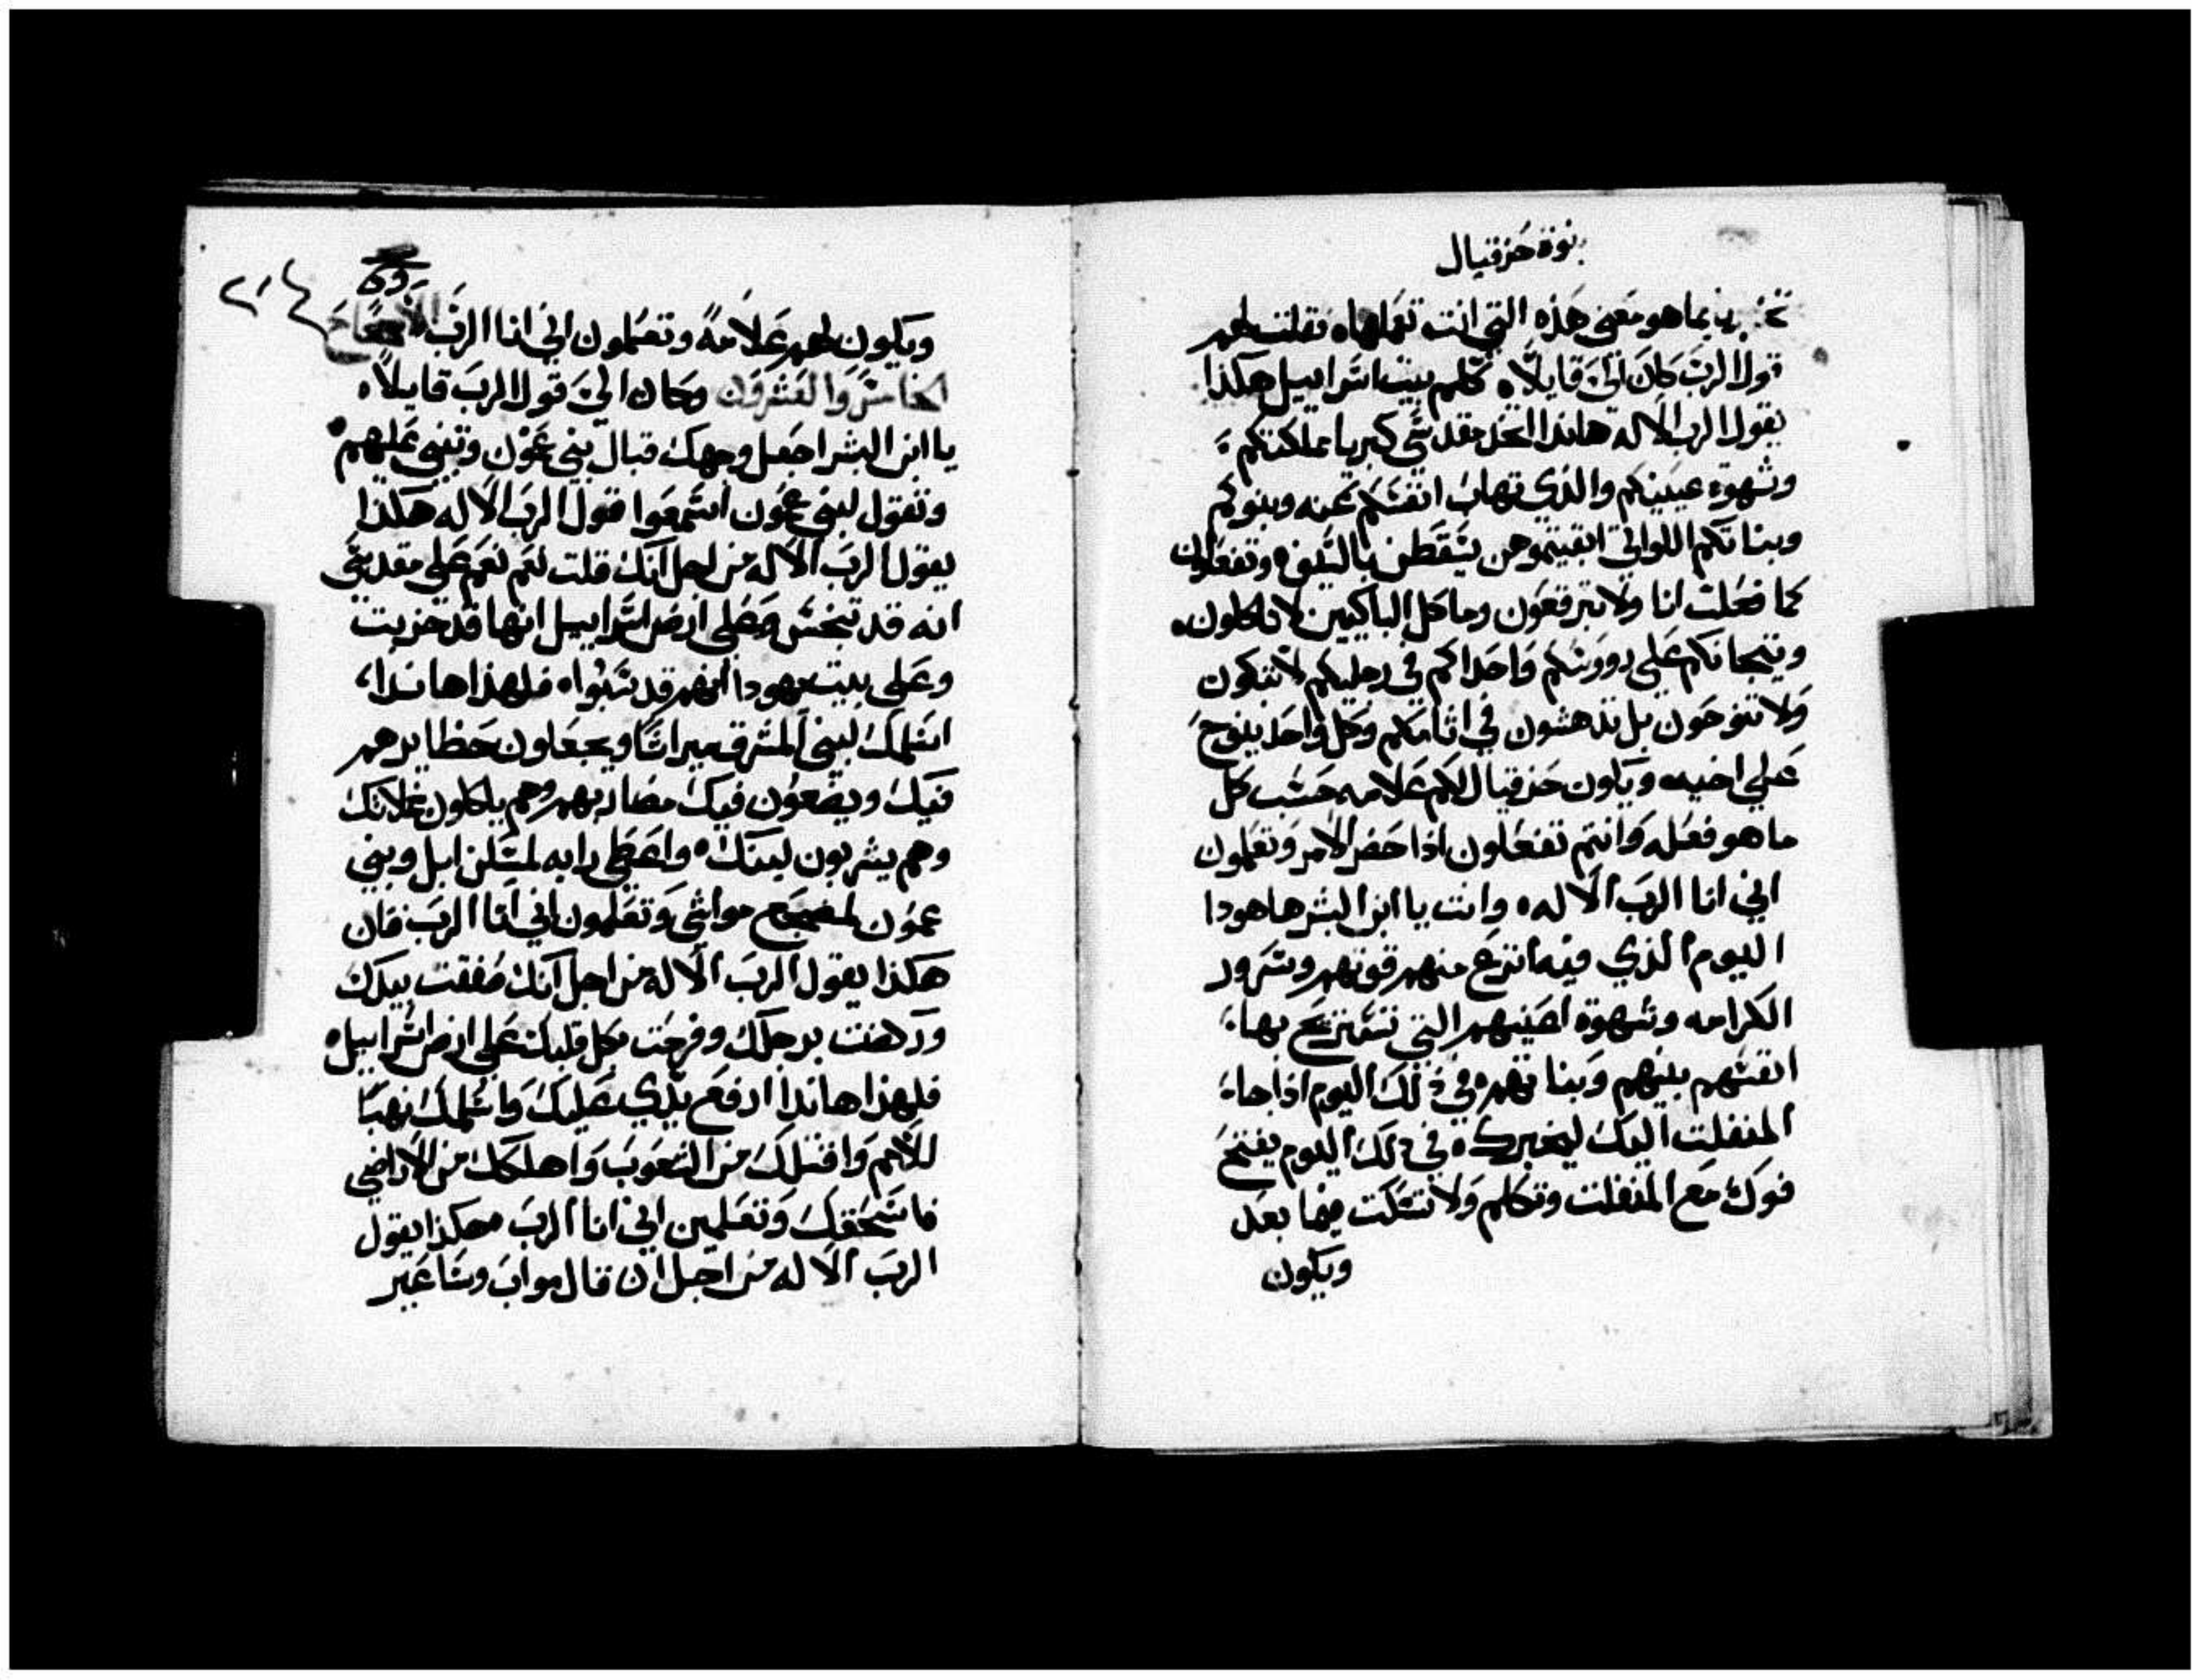 نبوة حزقيال
بما هو معنى هذه التي انت تعملها، فقلت لهم
قول الرب كان اليّ قايلاً، كلم بيت اسراييل هكذا
يقول الرب الاله هاندا انجس مقدسي كبريا مملكتكم،
وشهوة عينيكم والذي تهاب انفسكم عنه وبنوكم
وبناتكم اللواتي ابقيتموهن يسقطن بالسيف، وتفعلون
كما فعلت انا ولا تبرقعون وماكل الباكيين لا تاكلون،
وتيجانكم على رووسكم واحداكم في رجليكم لا تبكون
ولا تنوحون بل تدهشون في اثامكم وكل واحد ينوح
على اخيه، ويكون حزقيال لكم علامه حسب كل
ما هو فعله وانتم تفعلون اذا حضر الامر وتعلمون
اني انا الرب الاله، وانت يا ابن البشر ها هودا
اليوم الذي فيه انزع منهم قوتهم وسرور
الكرامه وشهوة اعينهم التي تستريح بها،
انفسهم بنيهم وبناتهم، في ذلك اليوم اذا جاء،
المنفلت اليك ليخبرك، في ذلك اليوم يفتح
فوك مع المنفلت وتكلم ولا تسكت فيما بعد
ويكون
ويكون لهم علامةً وتعلمون اني انا الرب الاصحاح
الخامس والعشرون وكان اليّ قول الرب قايلاً،
يا ابن البشر اجعل وجهك قبال بني عمون وتنبى عليهم
وتقول لبني عمون اسمعوا قول الرب الاله هكذا
يقول الرب الاله من اجل انك قلت نعم نعم على مقدسي
انه قد تنجس وعلى ارض اسراييل انها قد خربت
وعلى بيت يهودا انهم قد سبوا، فلهذا هاندا،
اسلمك لبني المشرق ميراثا ويجعلون حظايرهم
فيك ويضعون فيك مضاربهم وهم ياكلون غلاتك
وهم يشربون لبنك، واعطي رابه لمسكن ابل وبني
عمون لمضجع مواشي وتعلمون اني انا الرب فان
هكذا يقول الرب الاله من اجل انك صفقت بيدك
ودهنت برجلك وفرحت بكل قلبك على ارض اسراييل،
فلهذا هاندا ارفع يدي عليك واسلمك نهبًا
للامم واقتلك من الشعوب واهلكك من الاراضي
فاسحقك وتعلمين اني انا الرب هكذا يقول
الرب الاله من اجل ان قال مواب وساعير